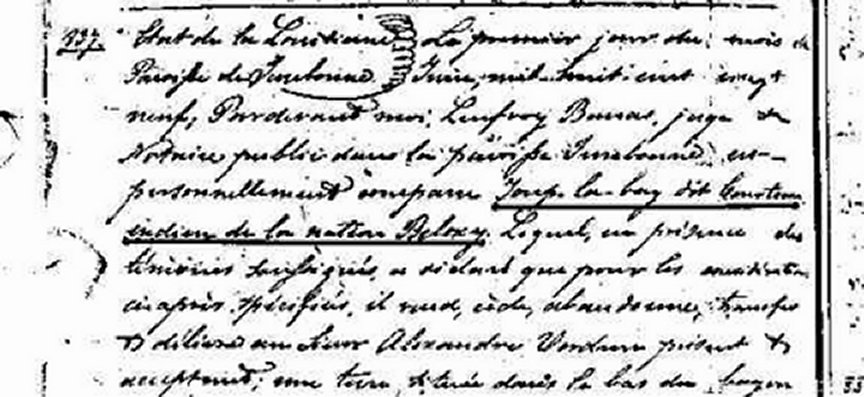 937. Etat de la Louisiane Le premier jour du mois de
Paroisse de Terrebonne Juin, mil huit cent vingt
neuf, Pardevant moi, Leufroy Barras, juge &
Notaire public dans la paroisse Terrebonne, est
personnellement comparu Joseph la-bay dit Courteau
indien de la nation Beloxy. Lequel, en présence des
témoins soussignés, a déclaré que pour les considérations
ci après spécifiées, il vend, cède, abandonne, transfer
& délivre au Sieur Alexandre Verdun présent &
acceptant, une terre située dans le bas du bayou